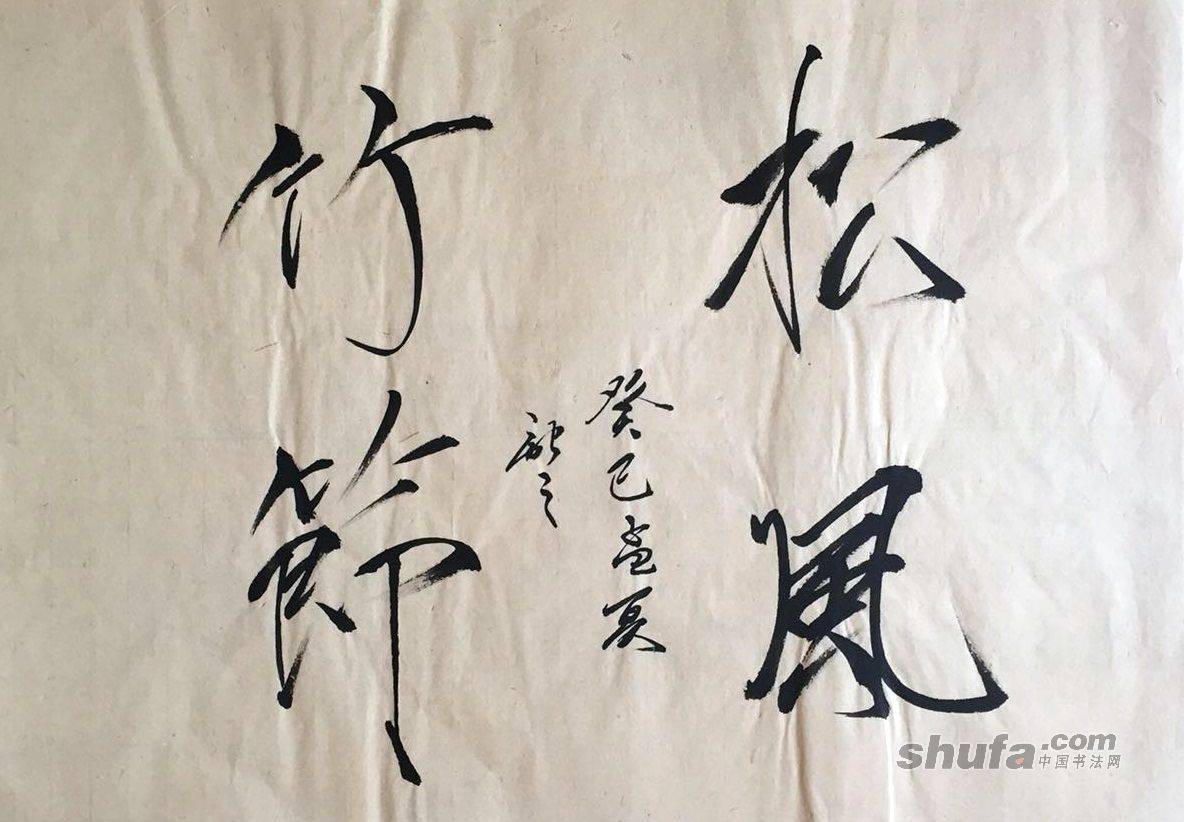 松風
竹節
癸巳孟夏
融之
shufa.com
中国书法网